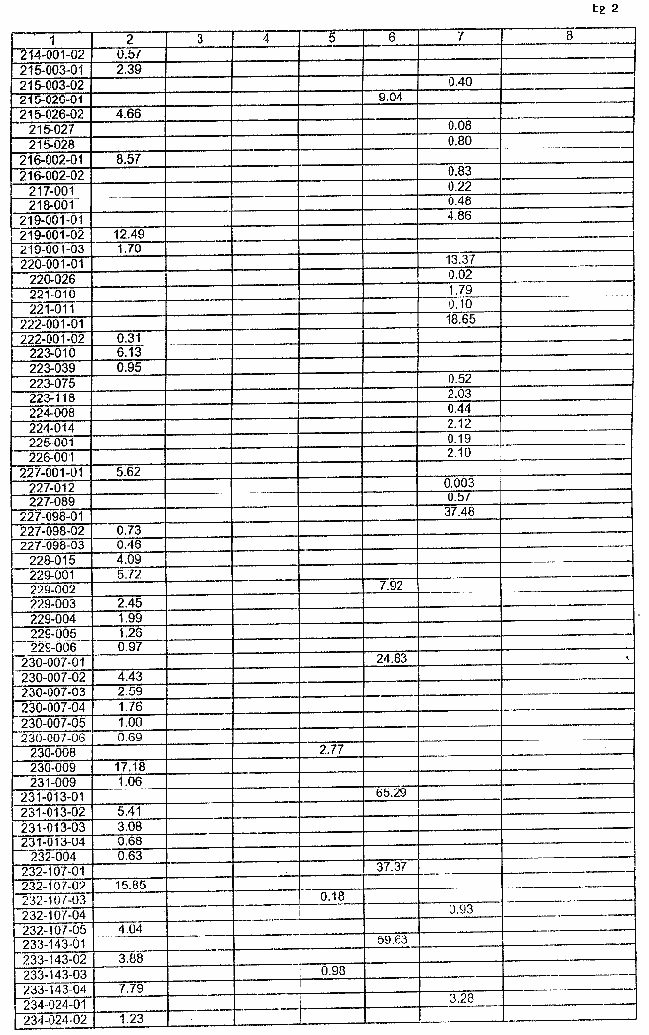 Lp 2
1 2 3 4 5 6 7 8
214-001-02 0.57
215-003-01 2.39
215-003-02 0.40
215-026-01 9.04
215-026-02 4.66
215-027 0.08
215-028 0.80
216-002-01 8.57
216-002-02 0.83
217-001 0.22
218-001 0.48
219-001-01 4.86
219-001-02 12.49
219-001-03 1.70
220-001-01 13.37
220-026 0.02
221-010 1.79
221-011 0.10
222-001-01 18.65
222-001-02 0.31
223-010 6.13
223-039 0.95
223-075 0.52
223-118 2.03
224-008 0.44
224-014 2.12
225-001 0.19
226-001 2.10
227-001-01 5.62
227-012 0.003
227-089 0.57
227-098-01 37.48
227-098-02 0.73
227-098-03 0.46
228-015 4.09
229-001 5.72
229-002 7.92
229-003 2.45
229-004 1.99
229-005 1.26
229-006 0.97
230-007-01 24.83
230-007-02 4.43
230-007-03 2.59
230-007-04 1.76
230-007-05 1.00
230-007-06 0.69
230-008 2.77
230-009 17.18
231-009 1.06
231-013-01 65.29
231-013-02 5.41
231-013-03 3.08
231-013-04 0.68
232-004 0.63
232-107-01 37.37
232-107-02 15.85
232-107-03 0.18
232-107-04 0.93
232-107-05 4.04
233-143-01 59.63
233-143-02 3.88
233-143-03 0.98
233-143-04 7.79
234-024-01 3.28
234-024-02 1.23